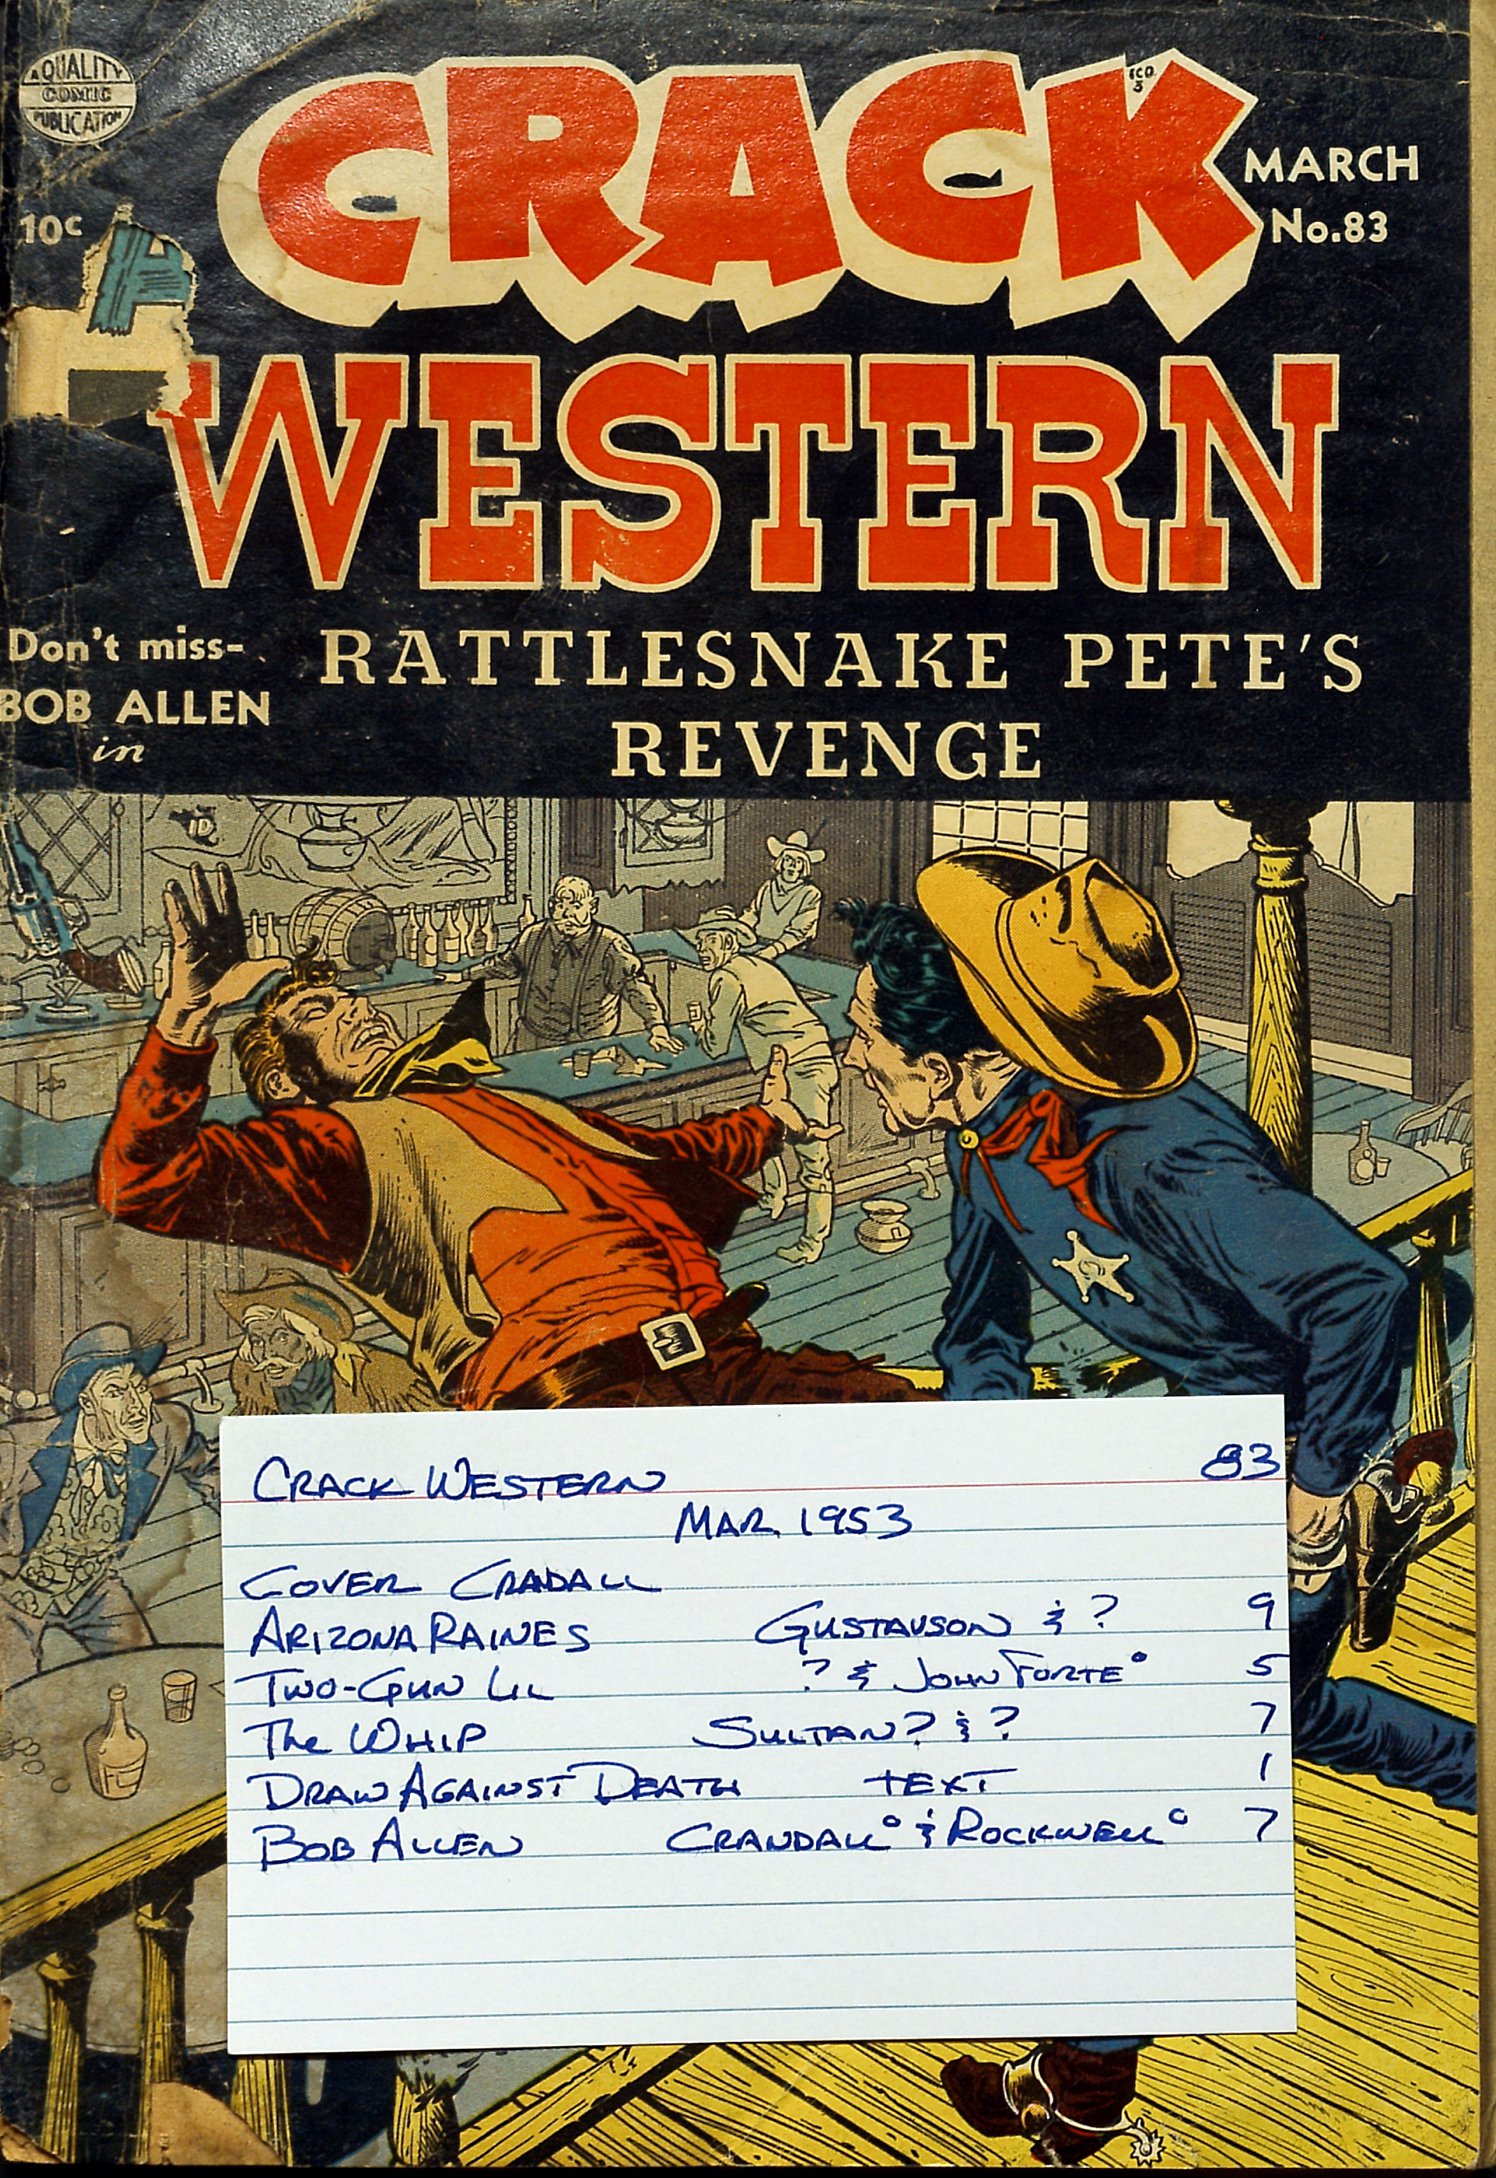 A QUALITY
COMIC
PUBLICATION
CRACK
MARCH
No.83
10c
WESTERN
Don't miss-
BOB ALLEN
in
RATTLESNAKE PETE'S
REVENGE
CRACK WESTERN 83
MAR. 1953
COVER CRANDALL
ARIZONA RAINES GUSTAVSON & ? 9
TWO-GUN LIL ? & JOHN FORTE° 5
The WHIP SULTAN? & ? 7
DRAW AGAINST DEATH TEXT 1
BOB ALLEN CRANDALL° & ROCKWELL° 7